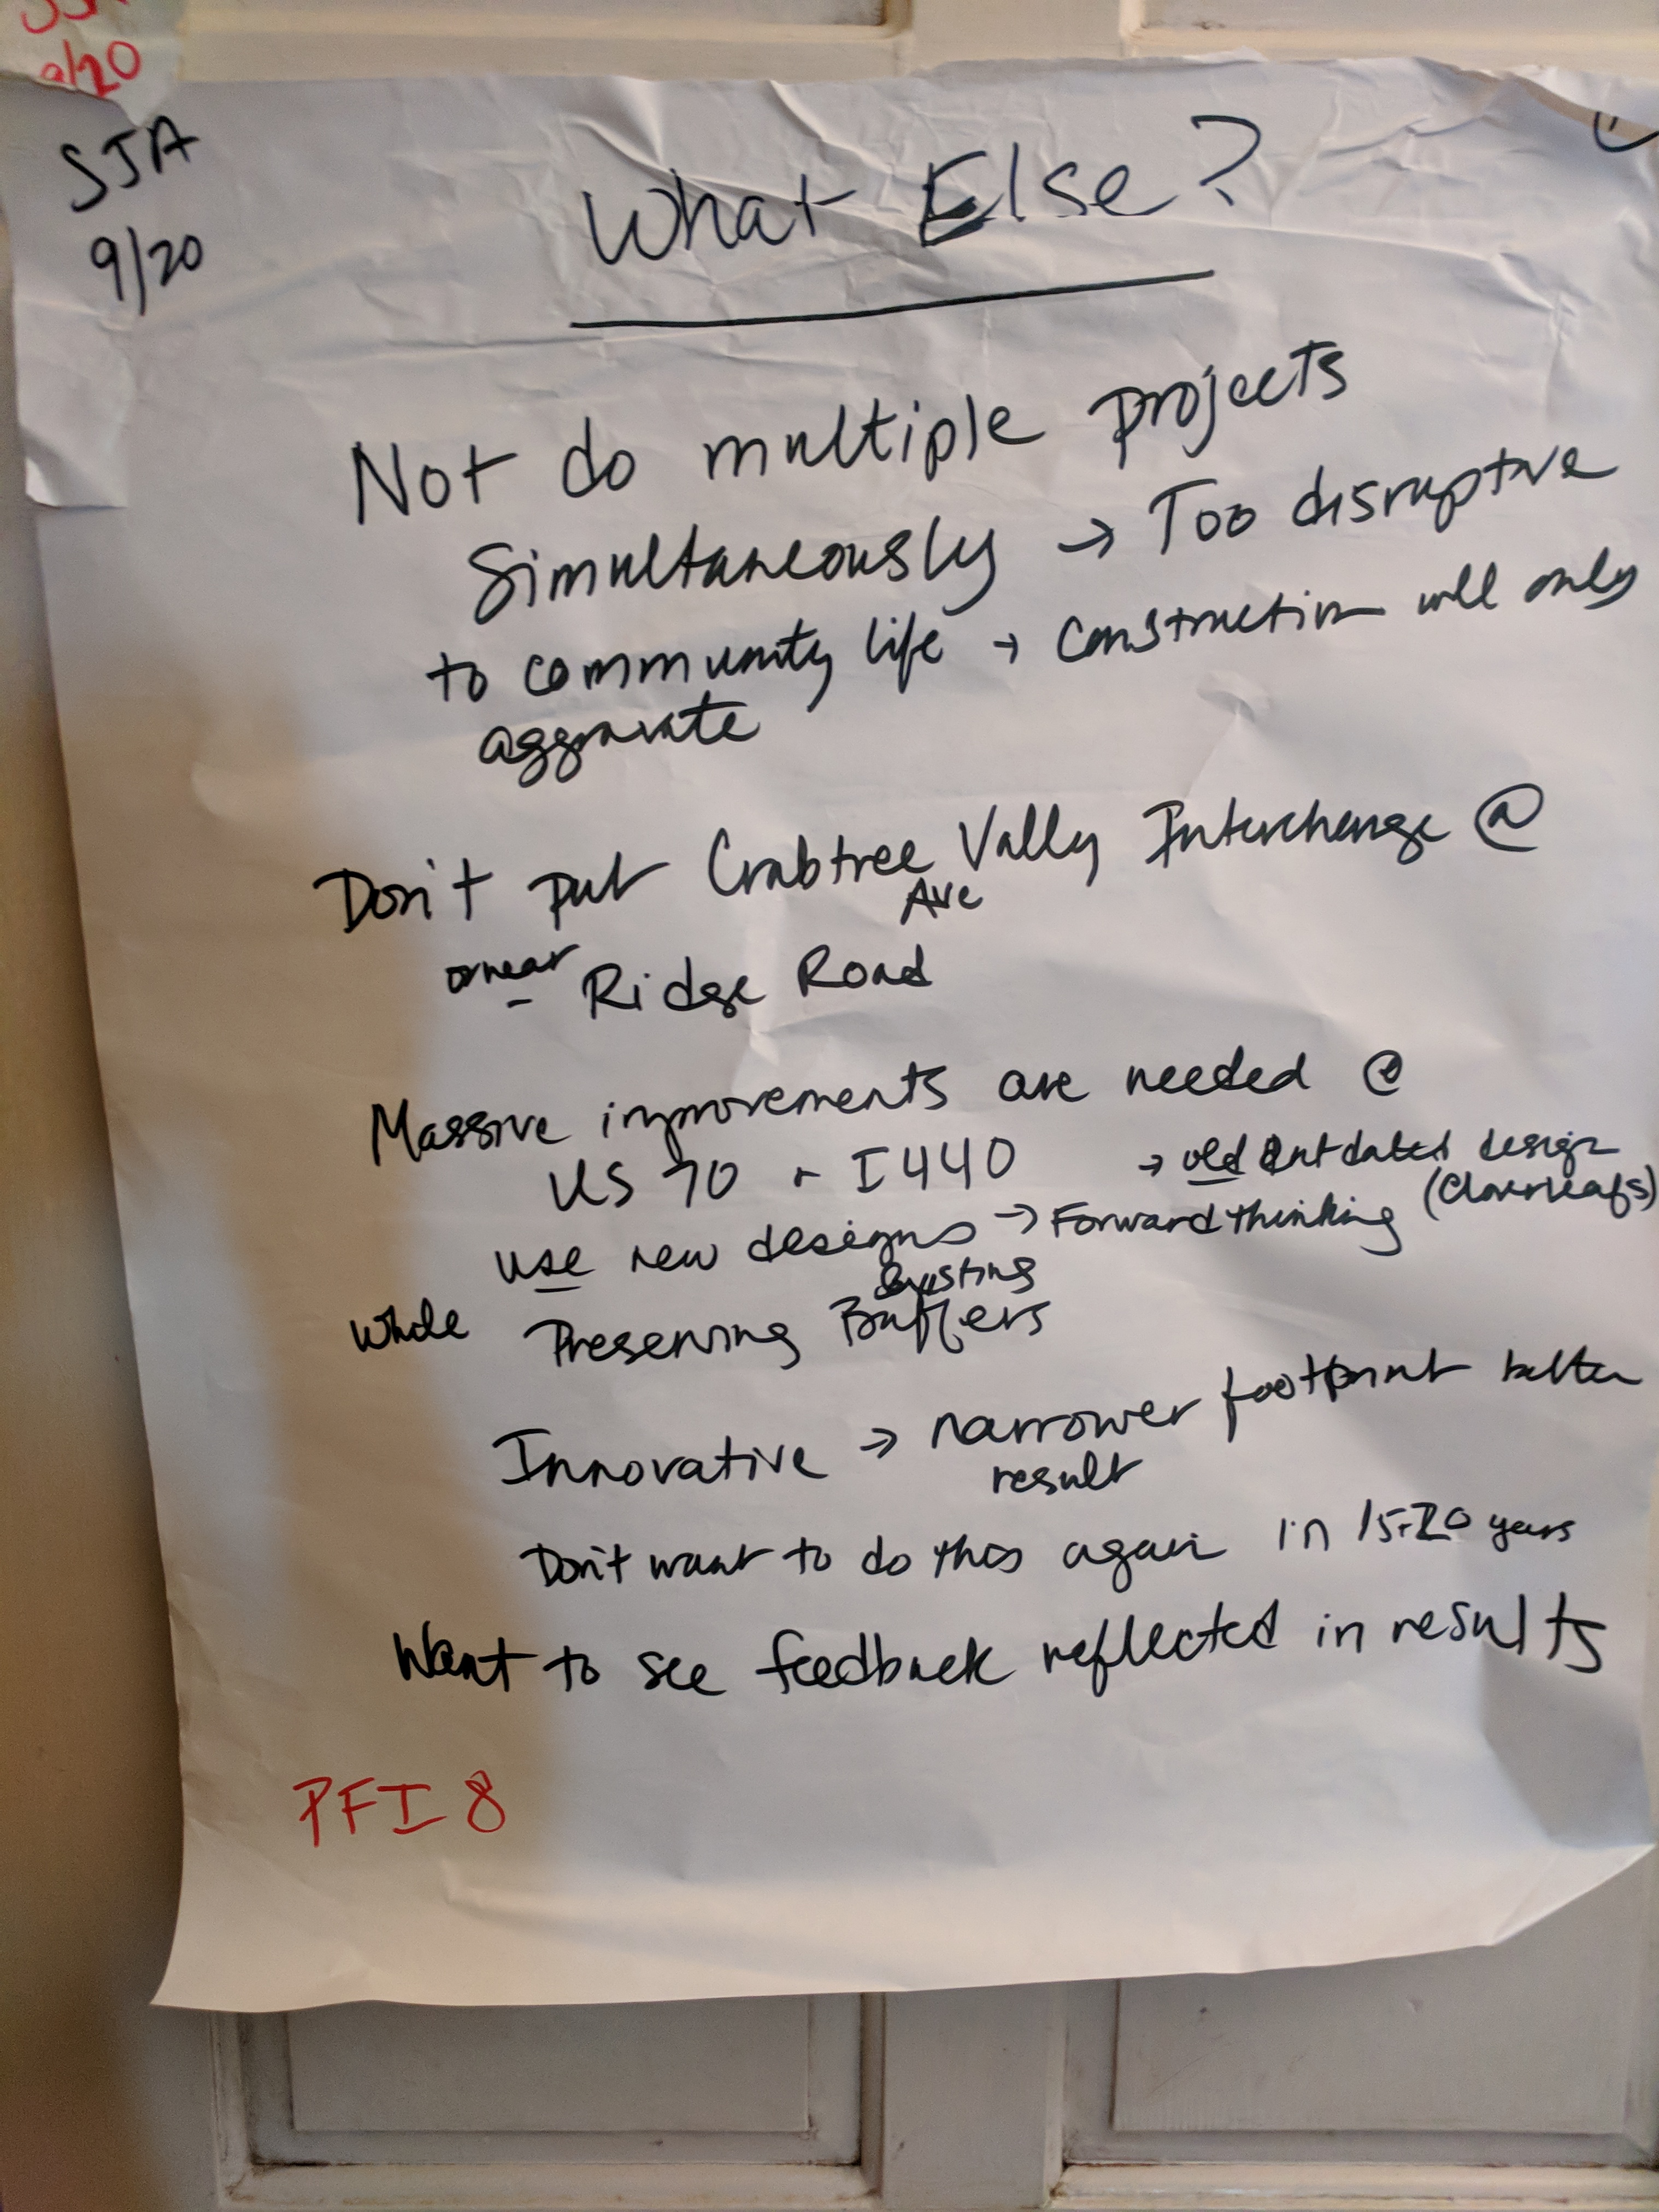 9/20
SJA
9/20
What Else?
Not do multiple projects
Simultaneously → Too disruptive
to community life → Construction will only
aggravate
Don't put Crabtree Vally Interchange @
Ave
or near Ridge Road
Massive improvements are needed @
US 70 + I440 → old outdated design
(Cloverleafs)
use new designs → Forward thinking
existing
while Preserving Buffers
Innovative → narrower footprint better
result
Don't want to do this again in 15-20 years
Want to see feedback reflected in results
PFI 8